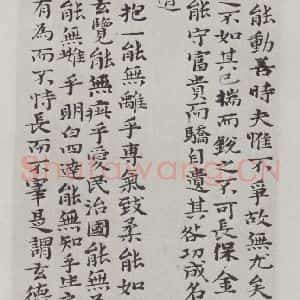 能動善時夫惟不爭故無尤矣
不如其已揣而銳之不可長保金
能守富貴而驕自遺其咎功成名
道
抱一能無離乎專氣致柔能如
玄覽能無疵乎愛民治國能無
能無雌乎明白四達能無知乎生
有為而不恃長而不宰是謂玄德
Shufawang.CN